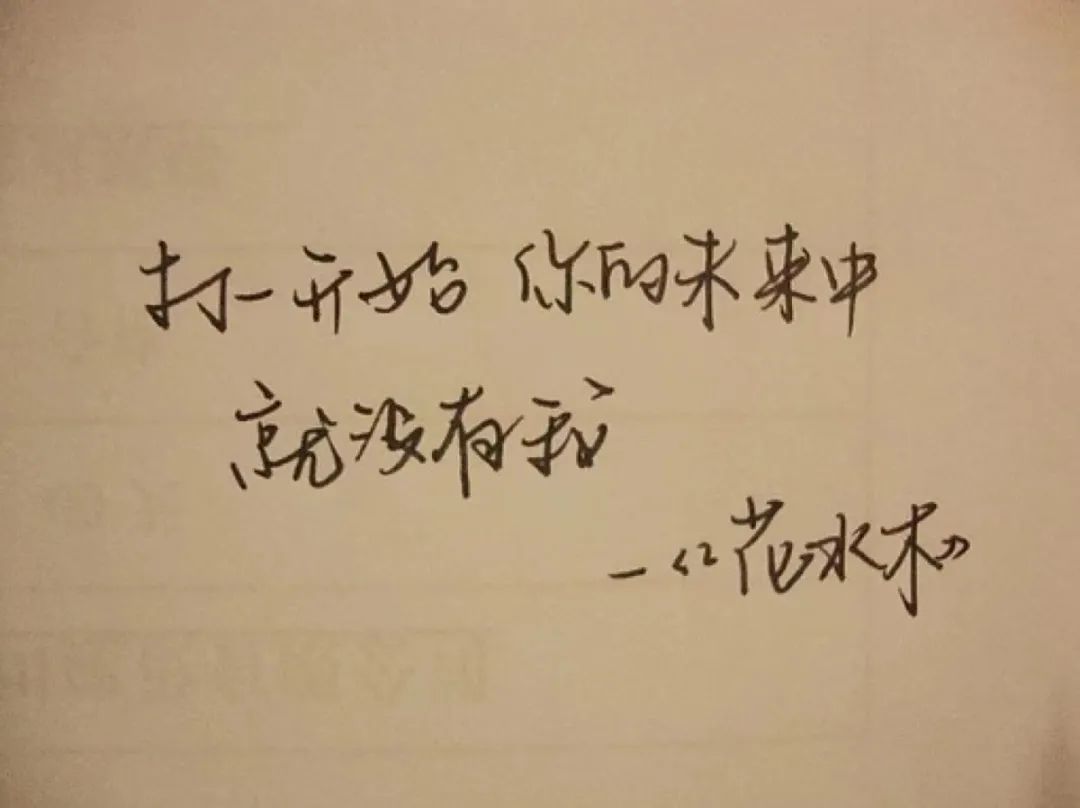 打一开始 你的未来中
就没有我
—《花水木》